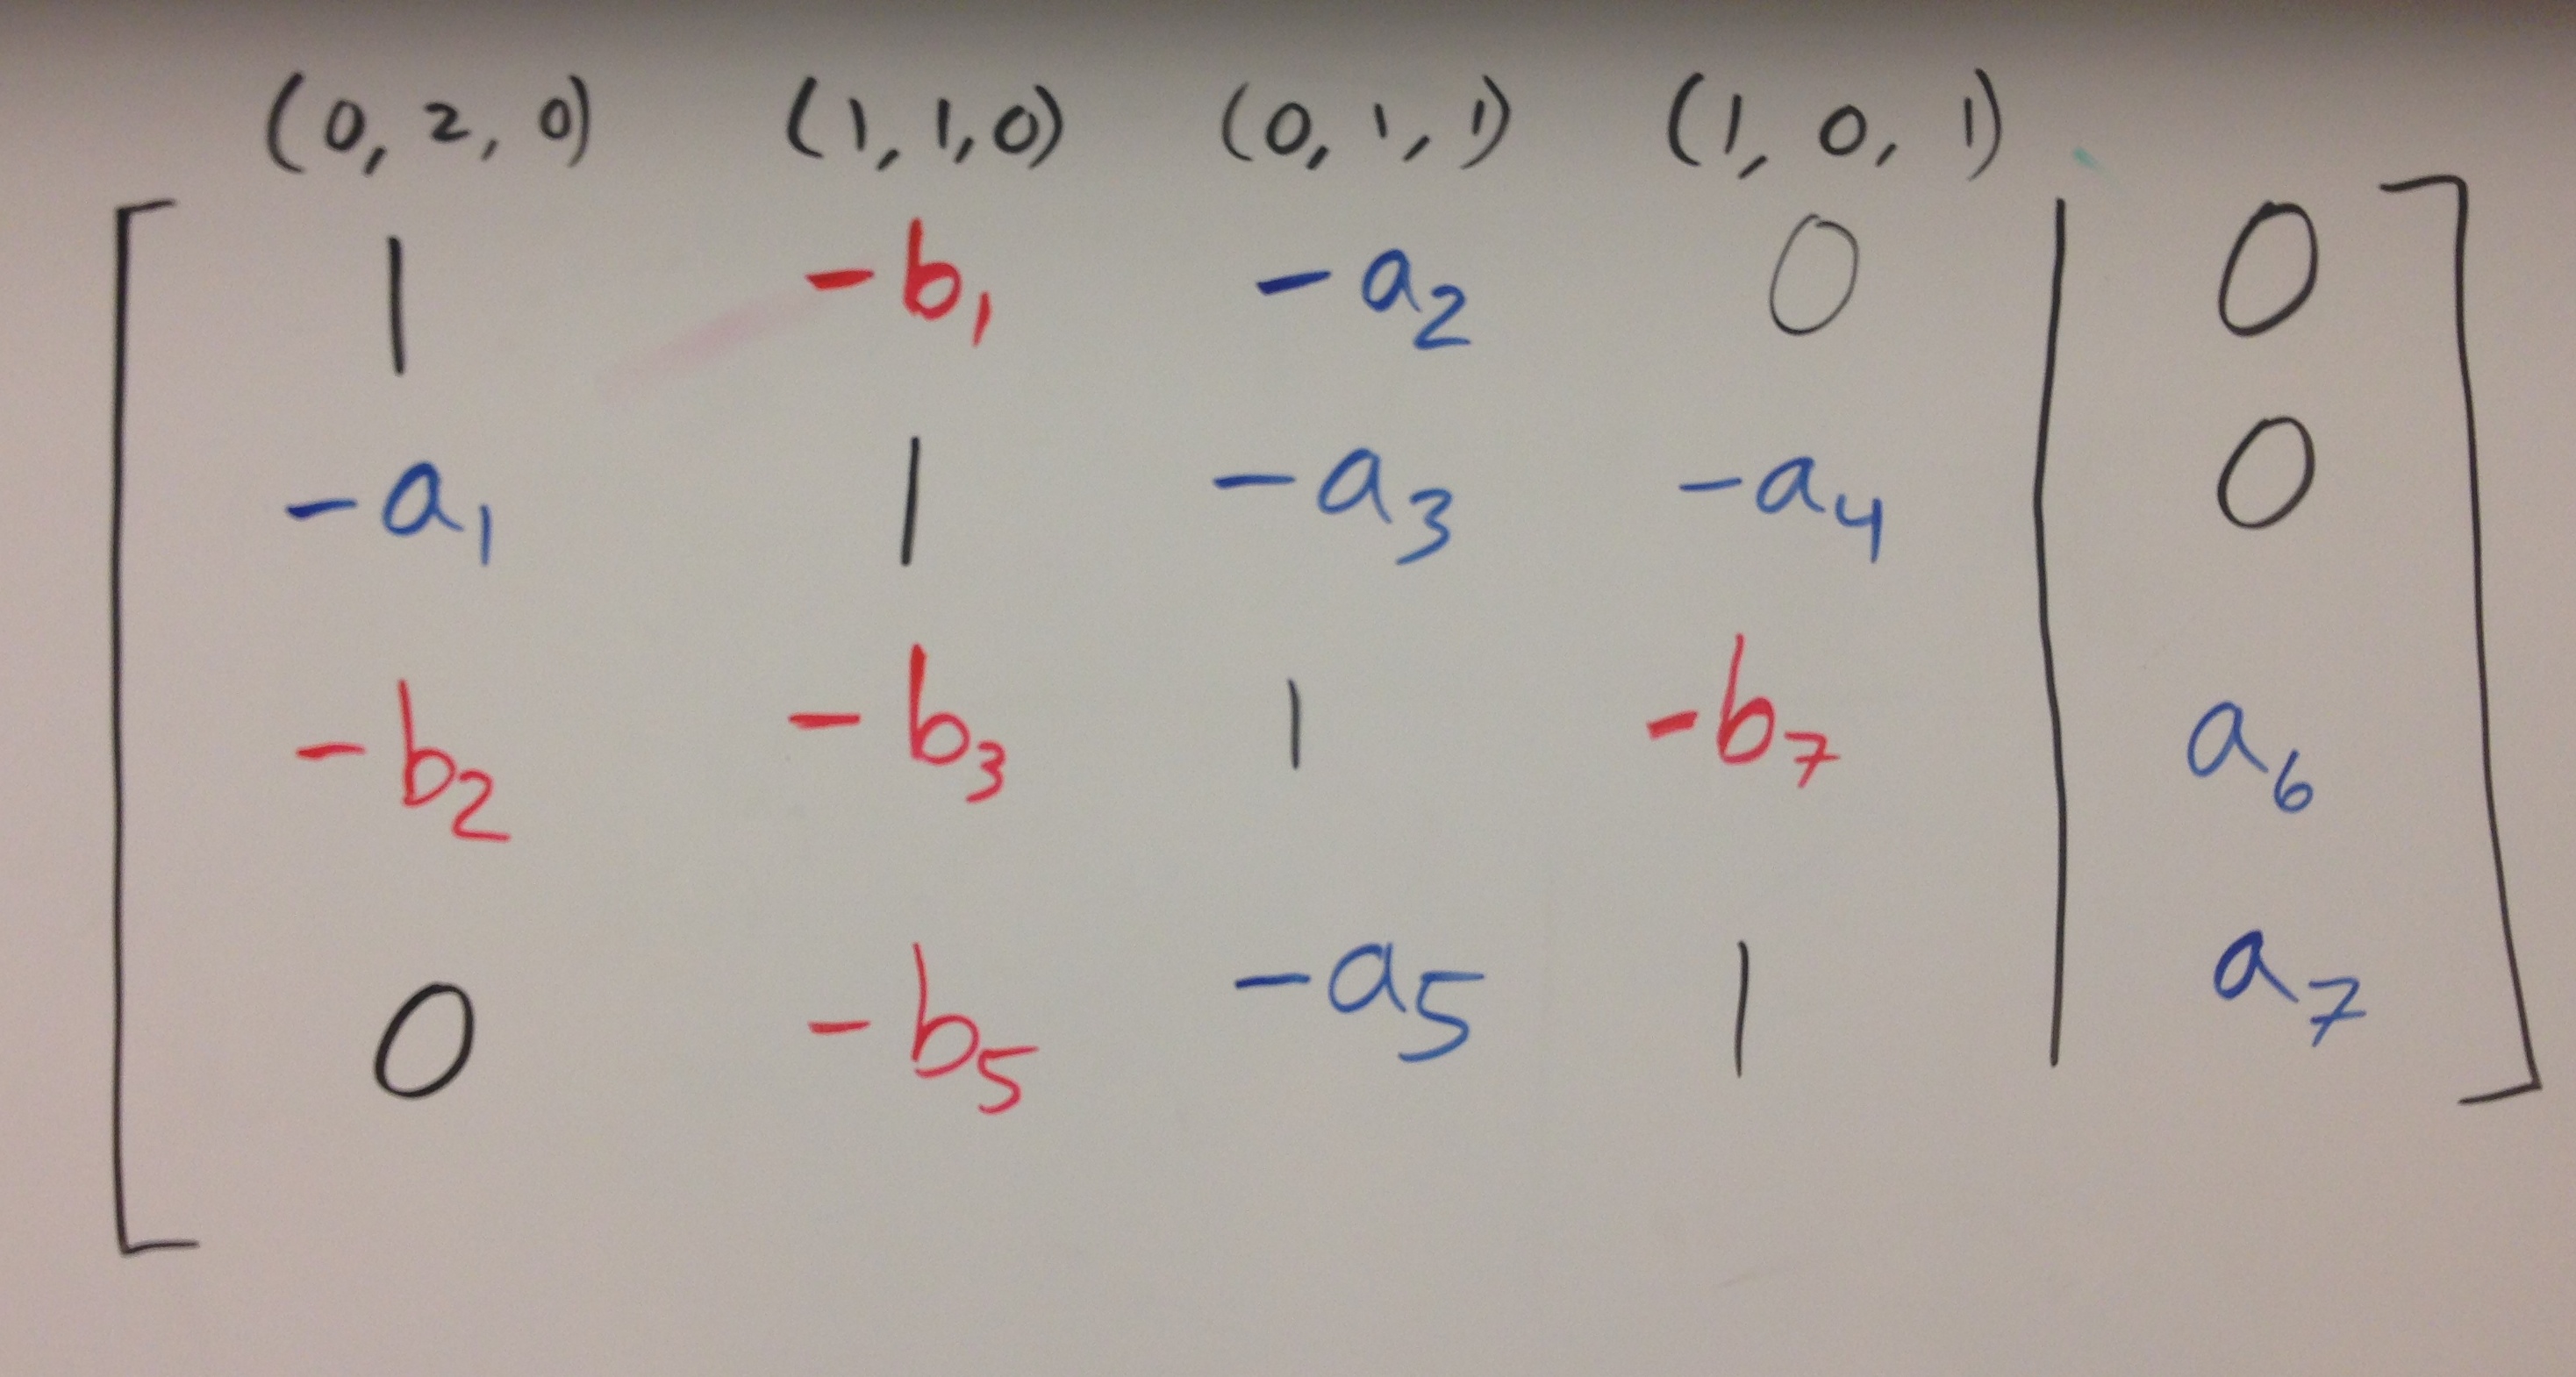 (0, 2, 0) (1, 1, 0) (0, 1, 1) (1, 0, 1)
1 -b₁ -a₂ 0 | 0
-a₁ 1 -a₃ -a₄ | 0
-b₂ -b₃ 1 -b₇ | a₆
0 -b₅ -a₅ 1 | a₇